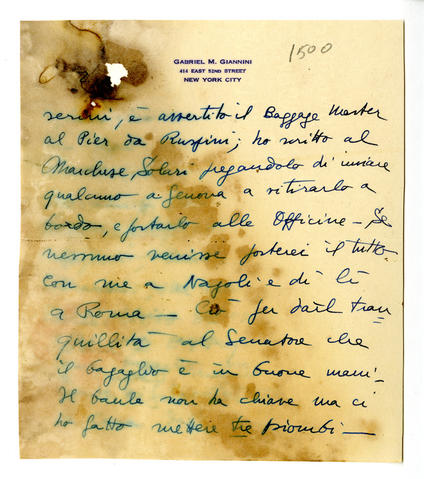 GABRIEL M. GIANNINI
414 EAST 52ND STREET
NEW YORK CITY
1500
serini, è avvertito il Baggage Master
al Pier da Ruspini; ho scritto al
Marchese Solari pregandolo di inviare
qualcuno a Genova a ritirarlo a
bordo, e portarlo alle Officine - Se
nessuno venisse porterei il tutto
con me a Napoli e di lì
a Roma - Ciò per darti tran
quillità al Senatore che
il bagaglio è in buone mani -
Il baule non ha chiave ma ci
ho fatto mettere tre piombi -